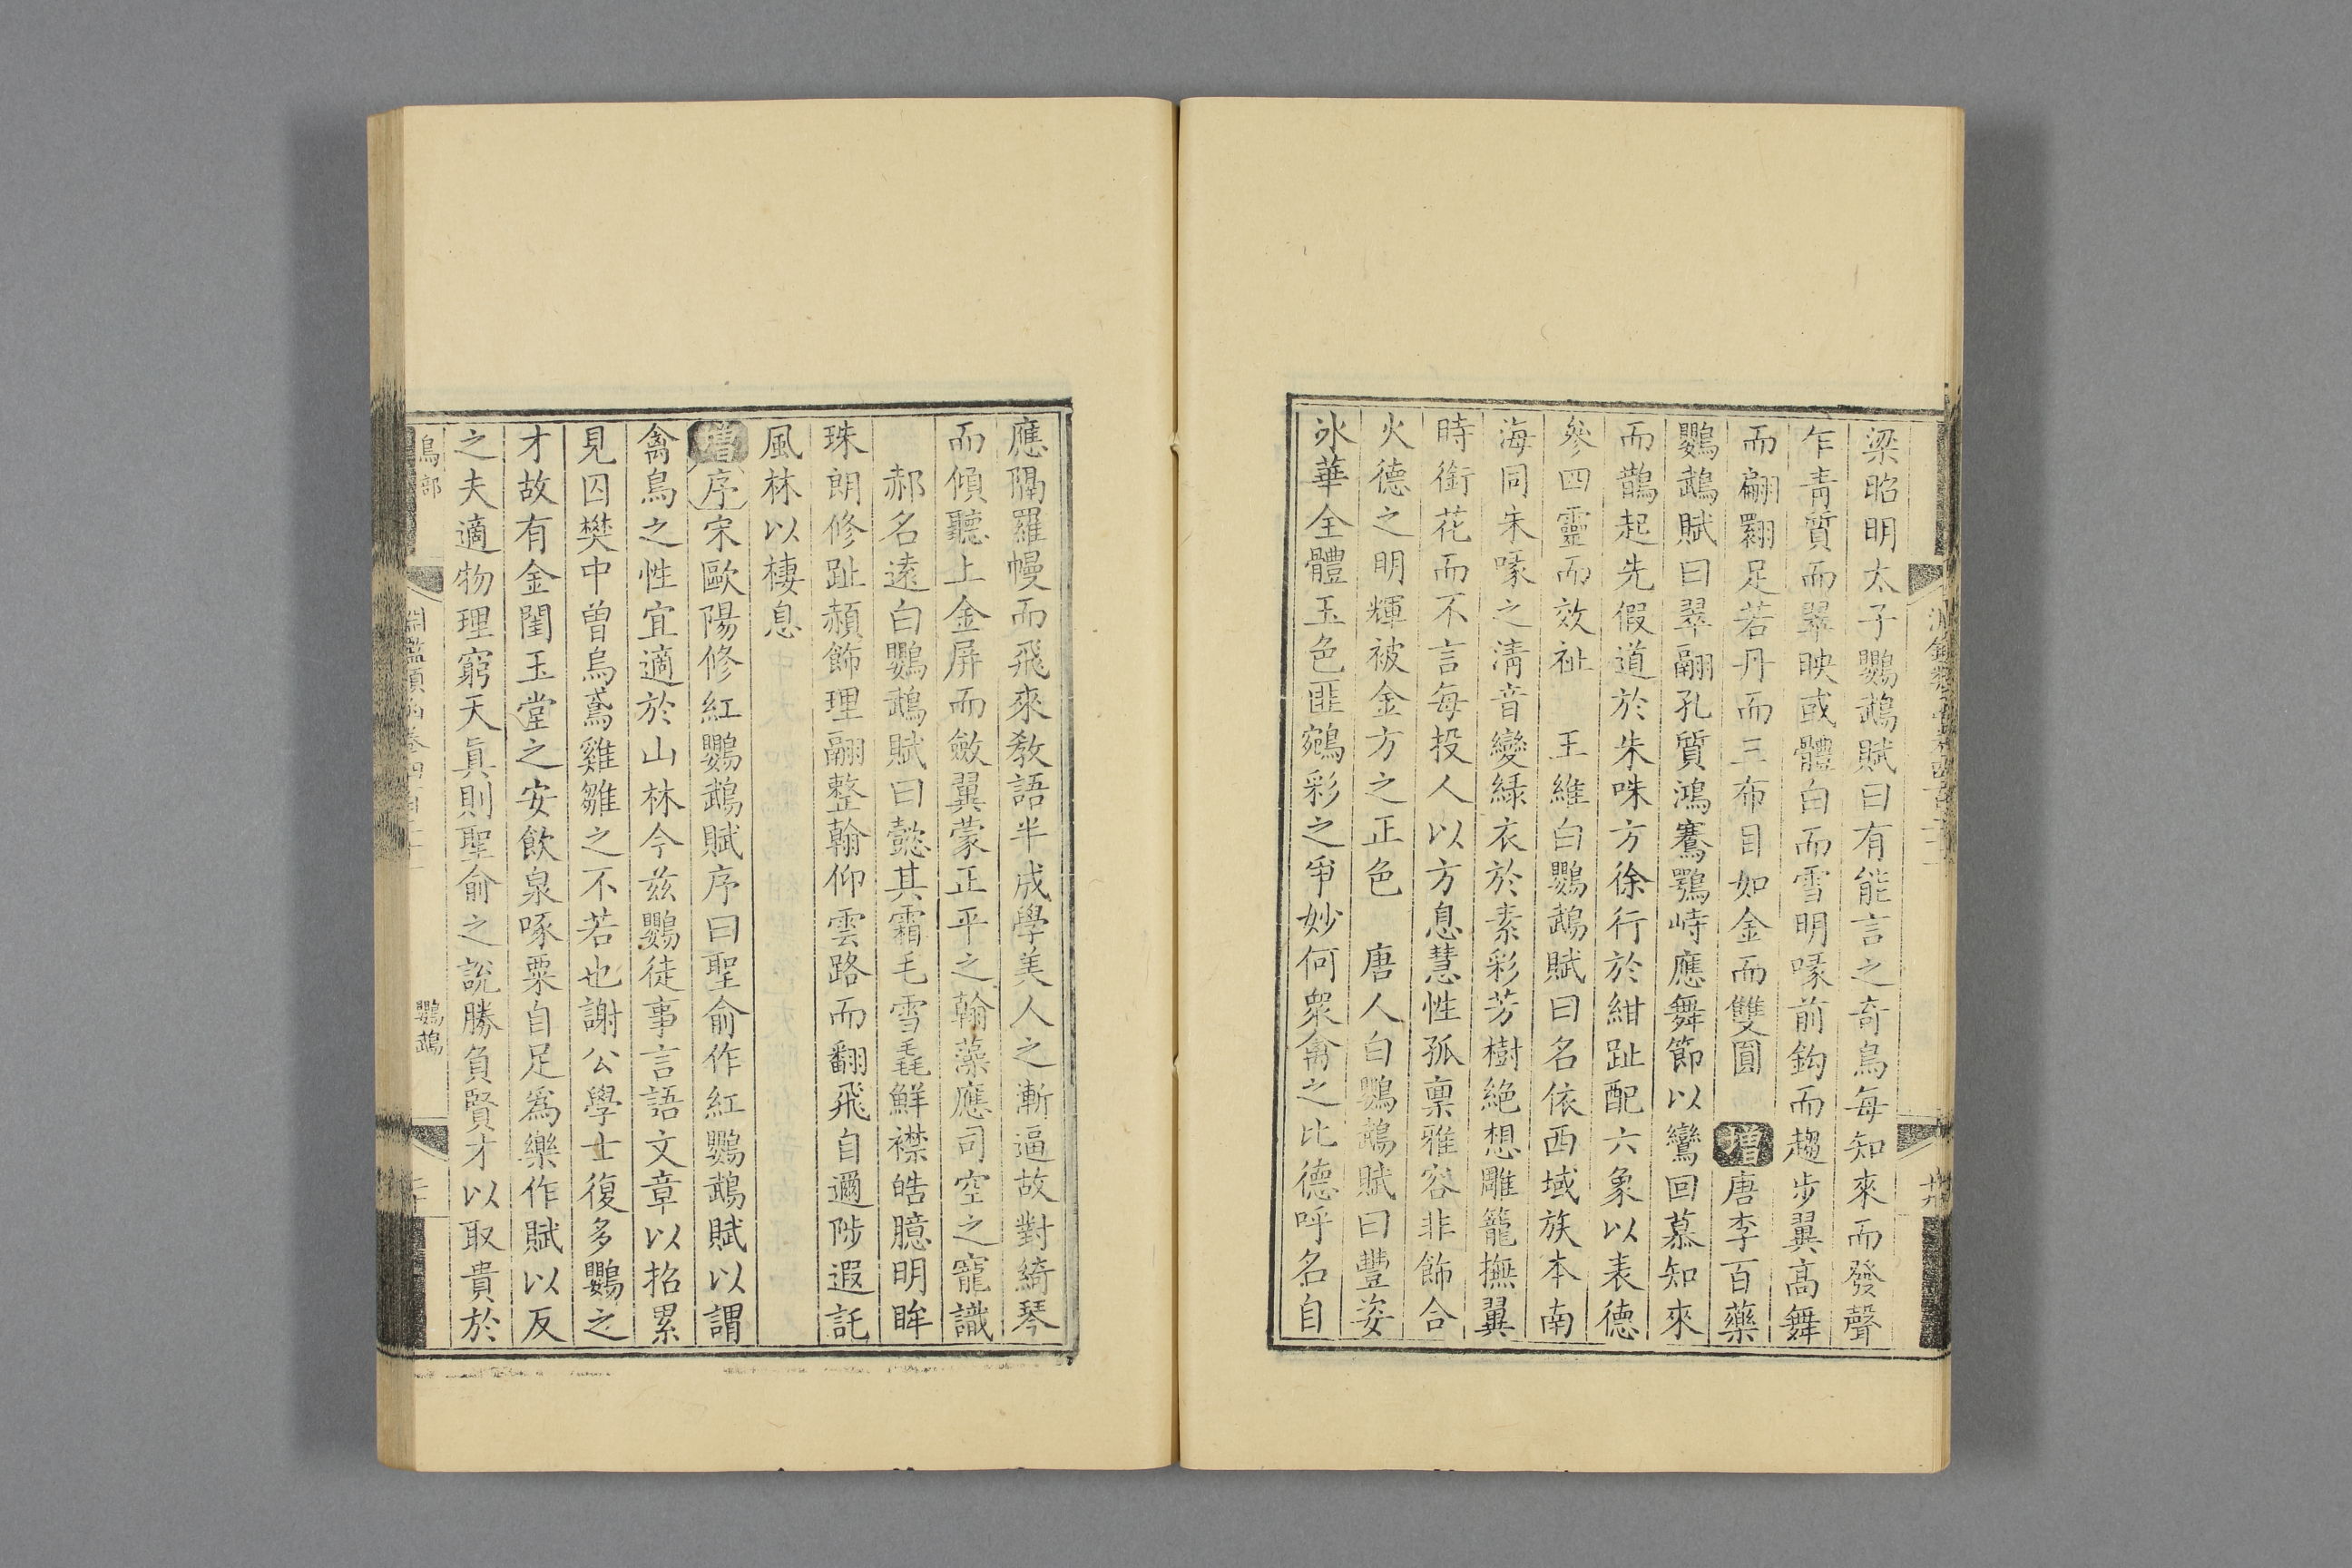 梁昭明太子鸚鵡賦曰有能言之奇鳥每知來而發聲
乍青質而翠映或體白而雪明喙前鈎而趨步翼高舞
而翩翾足若丹而三布目如金而雙圓 增 唐李百藥
鸚鵡賦曰翠翮孔質鴻騫鶚峙應舞節以鸞回慕知來
而鵲起先假道於朱咮方徐行於紺趾配六象以表德
參四靈而效祉 王維白鸚鵡賦曰名依西域族本南
海同朱喙之清音變綠衣於素彩芳樹絕想雕籠撫翼
時銜花而不言每投人以方息慧性孤稟雅容非飾合
火德之明輝被金方之正色 唐人白鸚鵡賦曰豐姿
冰華全體玉色匪鵷彩之爭妙何衆禽之比德呼名自
十九
應隔羅幔而飛來教語半成學美人之漸逼故對綺琴
而傾聽上金屏而斂翼蒙正平之翰藻應司空之寵識
郝名遠白鸚鵡賦曰懿其霜毛雪毳鮮襟皓臆明眸
珠朗修趾頳飾理翮整翰仰雲路而翻飛自邇陟遐託
風林以棲息
增 序 宋歐陽修紅鸚鵡賦序曰聖俞作紅鸚鵡賦以謂
禽鳥之性宜適於山林今茲鸚徒事言語文章以招累
見囚樊中曾烏鳶雞雛之不若也謝公學士復多鸚之
才故有金閨玉堂之安飲泉啄粟自足為樂作賦以反
之夫適物理窮天眞則聖俞之說勝負賢才以取貴於
鳥部 鸚鵡 二十